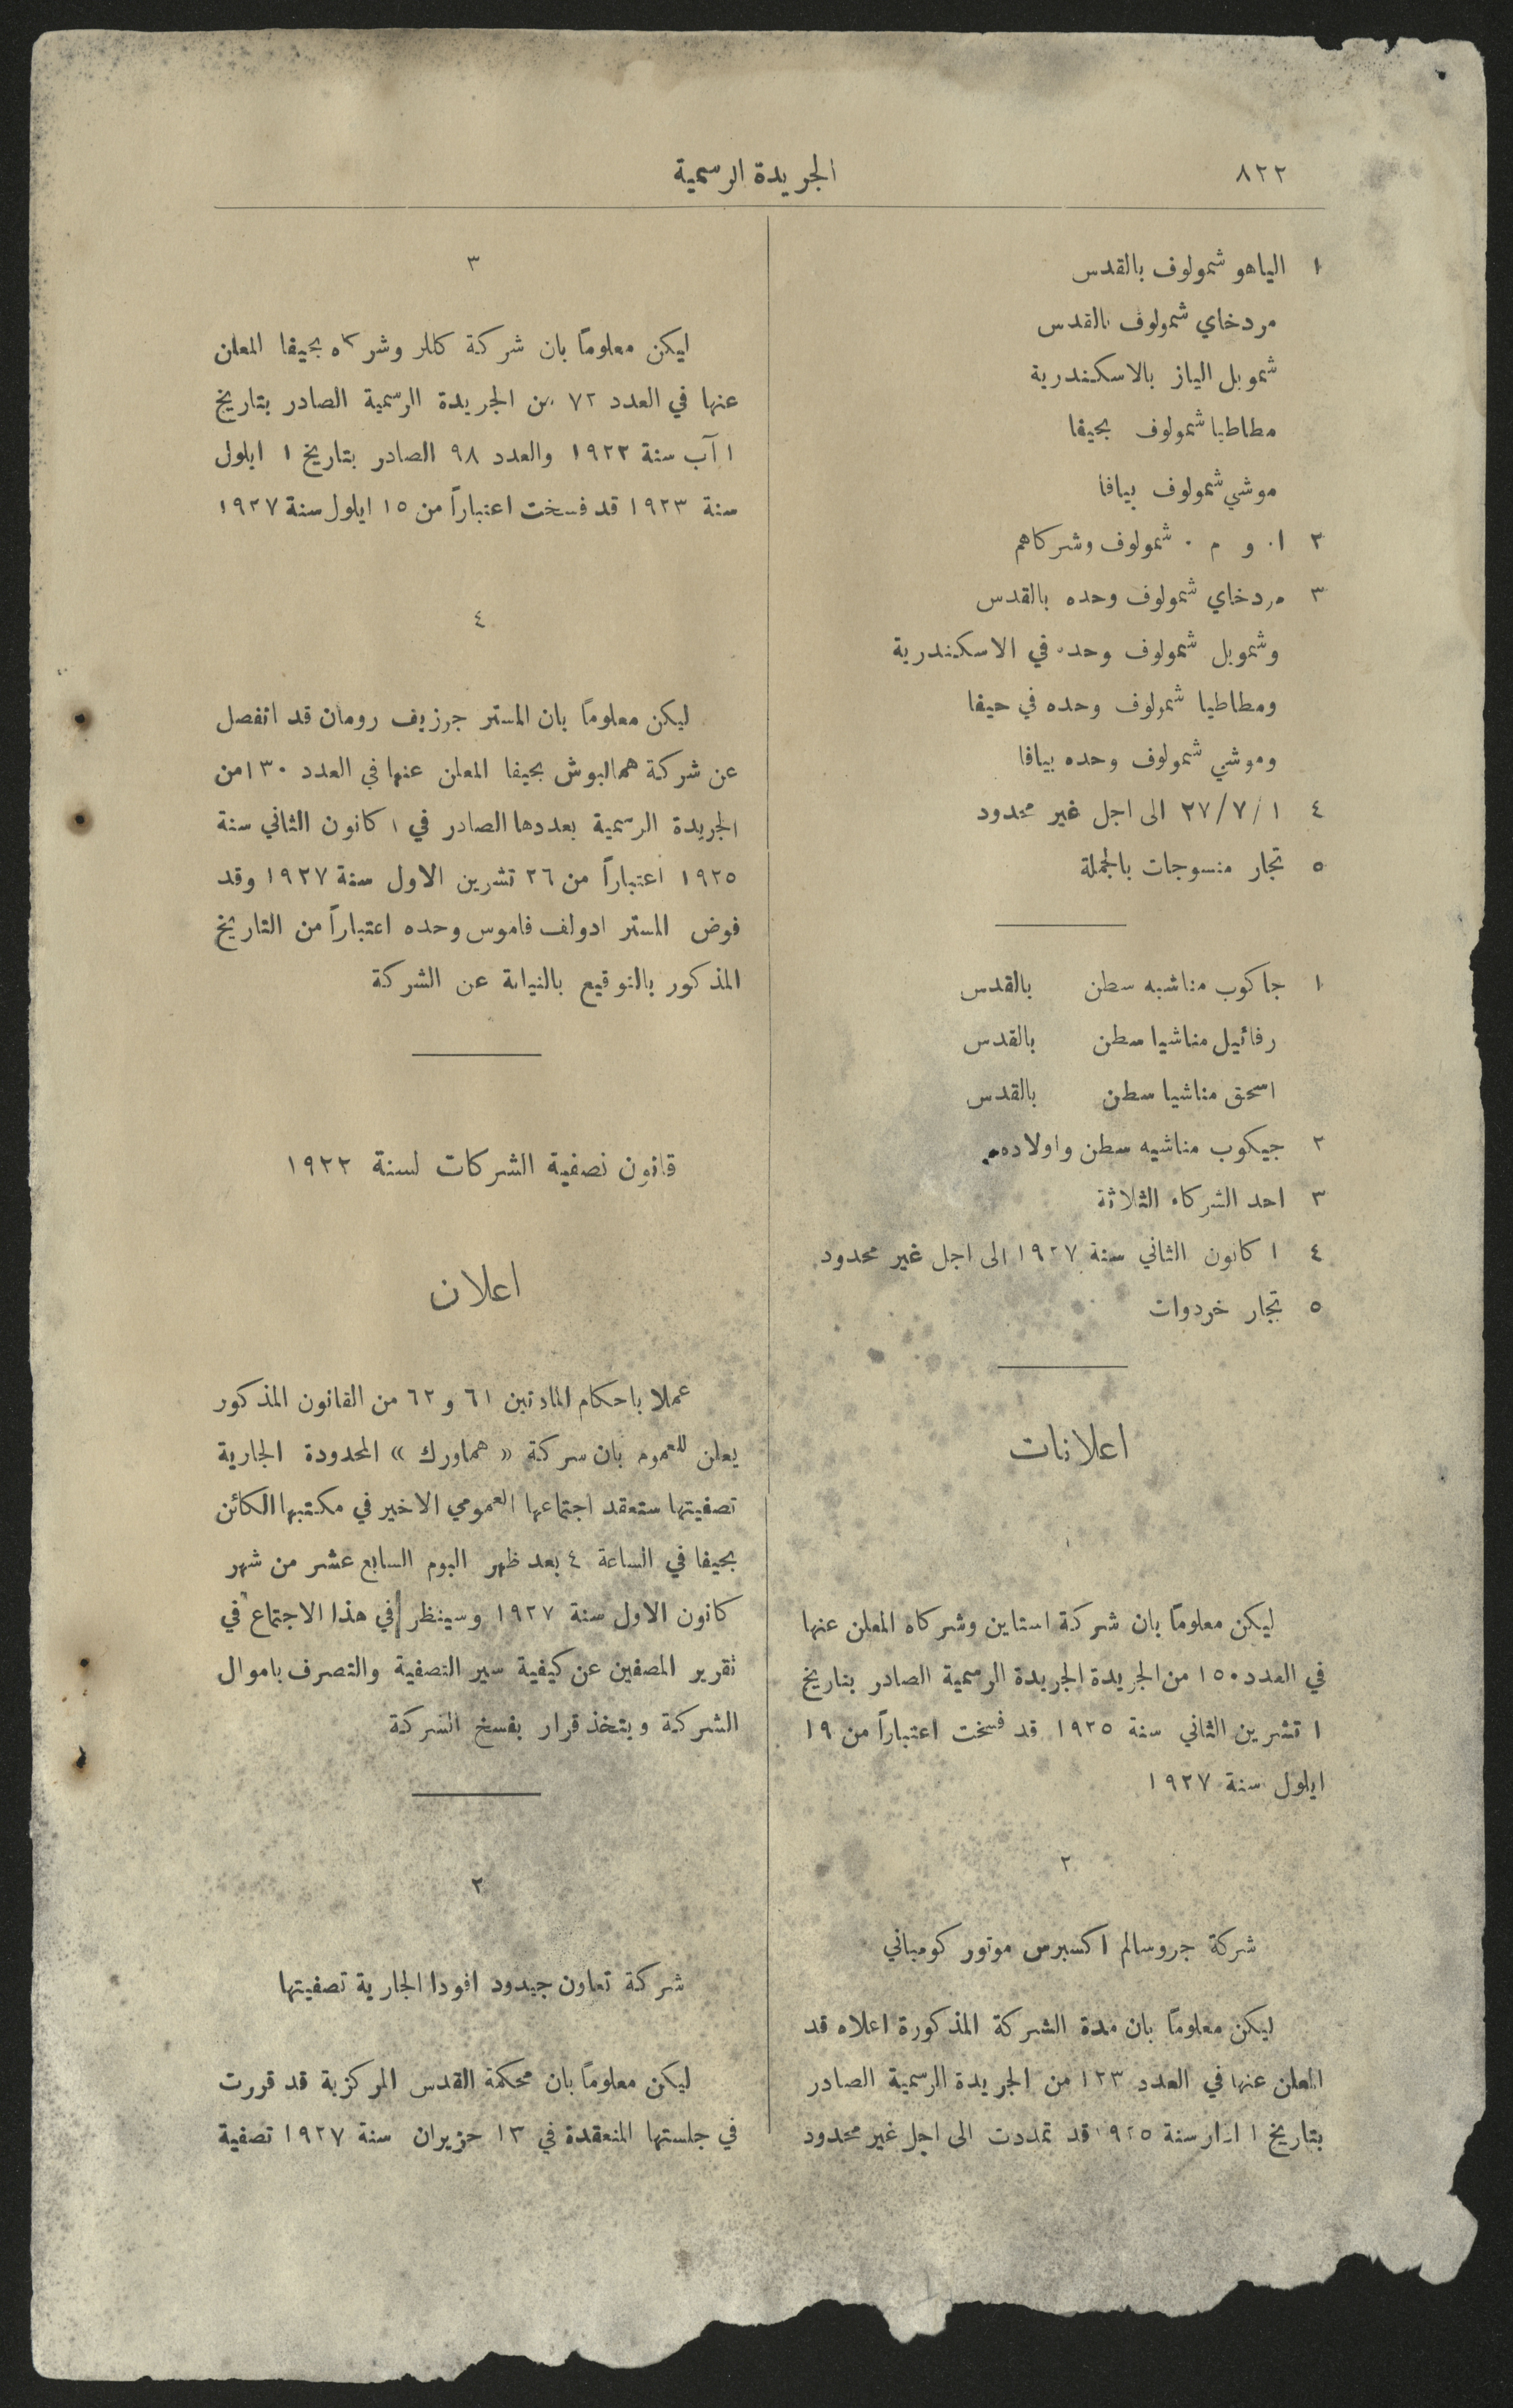 ٨٢٢
الجريدة الرسمية
١ الياهو شمولوف بالقدس
مردخاي شمولوف بالقدس
شموبل الياز بالاسكندرية
مطاطيا شمولوف بحيفا
موشي شمولوف بيافا
٢ ا. و م. شمولوف وشركاهم
٣ مردخاي شمولوف وحده بالقدس
وشموبل شمولوف وحده في الاسكندرية
ومطاطيا شمولوف وحده في حيفا
وموشي شمولوف وحده بيافا
٤ ٢٧/٧/١ الى اجل غير محدود
٥ تجار منسوجات بالجملة
١ جاكوب مناشيه سطن بالقدس
رفائيل مناشيا سطن بالقدس
اسحق مناشيا سطن بالقدس
٢ جيكوب مناشيه سطن واولاده
٣ احد الشركاء الثلاثة
٤ ١ كانون الثاني سنة ١٩٢٧ الى اجل غير محدود
٥ تجار خردوات
اعلانات
١
ليكن معلوماً بان شركة استاين وشركاه المعلن عنها
في العدد ١٥٠ من الجريدة الجريدة الرسمية الصادر بتاريخ
١ تشرين الثاني سنة ١٩٢٥ قد فسخت اعتباراً من ١٩
ايلول سنة ١٩٢٧
٢
شركة جروسالم اكسبرس موتور كومباني
ليكن معلوماً بان مدة الشركة المذكورة اعلاه قد
المعلن عنها في العدد ١٢٣ من الجريدة الرسمية الصادر
بتاريخ ١ اذار سنة ١٩٢٥ قد تمددت الى اجل غير محدود
٣
ليكن معلوماً بان شركة كللر وشركاه بحيفا المعلن
عنها في العدد ٧٢ من الجريدة الرسمية الصادر بتاريخ
١ آب سنة ١٩٢٢ والعدد ٩٨ الصادر بتاريخ ١ ايلول
سنة ١٩٢٣ قد فسخت اعتباراً من ١٥ ايلول سنة ١٩٢٧
٤
ليكن معلوماً بان المستر جوزيف رومان قد انفصل
عن شركة همالبوش بحيفا المعلن عنها في العدد ١٣٠ من
الجريدة الرسمية بعددها الصادر في ١ كانون الثاني سنة
١٩٢٥ اعتباراً من ٢٦ تشرين الاول سنة ١٩٢٧ وقد
فوض المستر ادولف فاموس وحده اعتباراً من التاريخ
المذكور بالتوقيع بالنيابة عن الشركة
قانون تصفية الشركات لسنة ١٩٢٢
اعلان
عملا باحكام المادتين ٦١ و ٦٢ من القانون المذكور
يعلن للعموم بان شركة « هماورك » المحدودة الجارية
تصفيتها ستعقد اجتماعها العمومي الاخير في مكتبها الكائن
بحيفا في الساعة ٤ بعد ظهر اليوم السابع عشر من شهر
كانون الاول سنة ١٩٢٧ وسينظر في هذا الاجتماع في
تقرير المصفين عن كيفية سير التصفية والتصرف باموال
الشركة ويتخذ قرار بفسخ الشركة
٢
شركة تعاون جيدود افودا الجارية تصفيتها
ليكن معلوماً بان محكمة القدس المركزية قد قررت
في جلستها المنعقدة في ١٣ حزيران سنة ١٩٢٧ تصفية